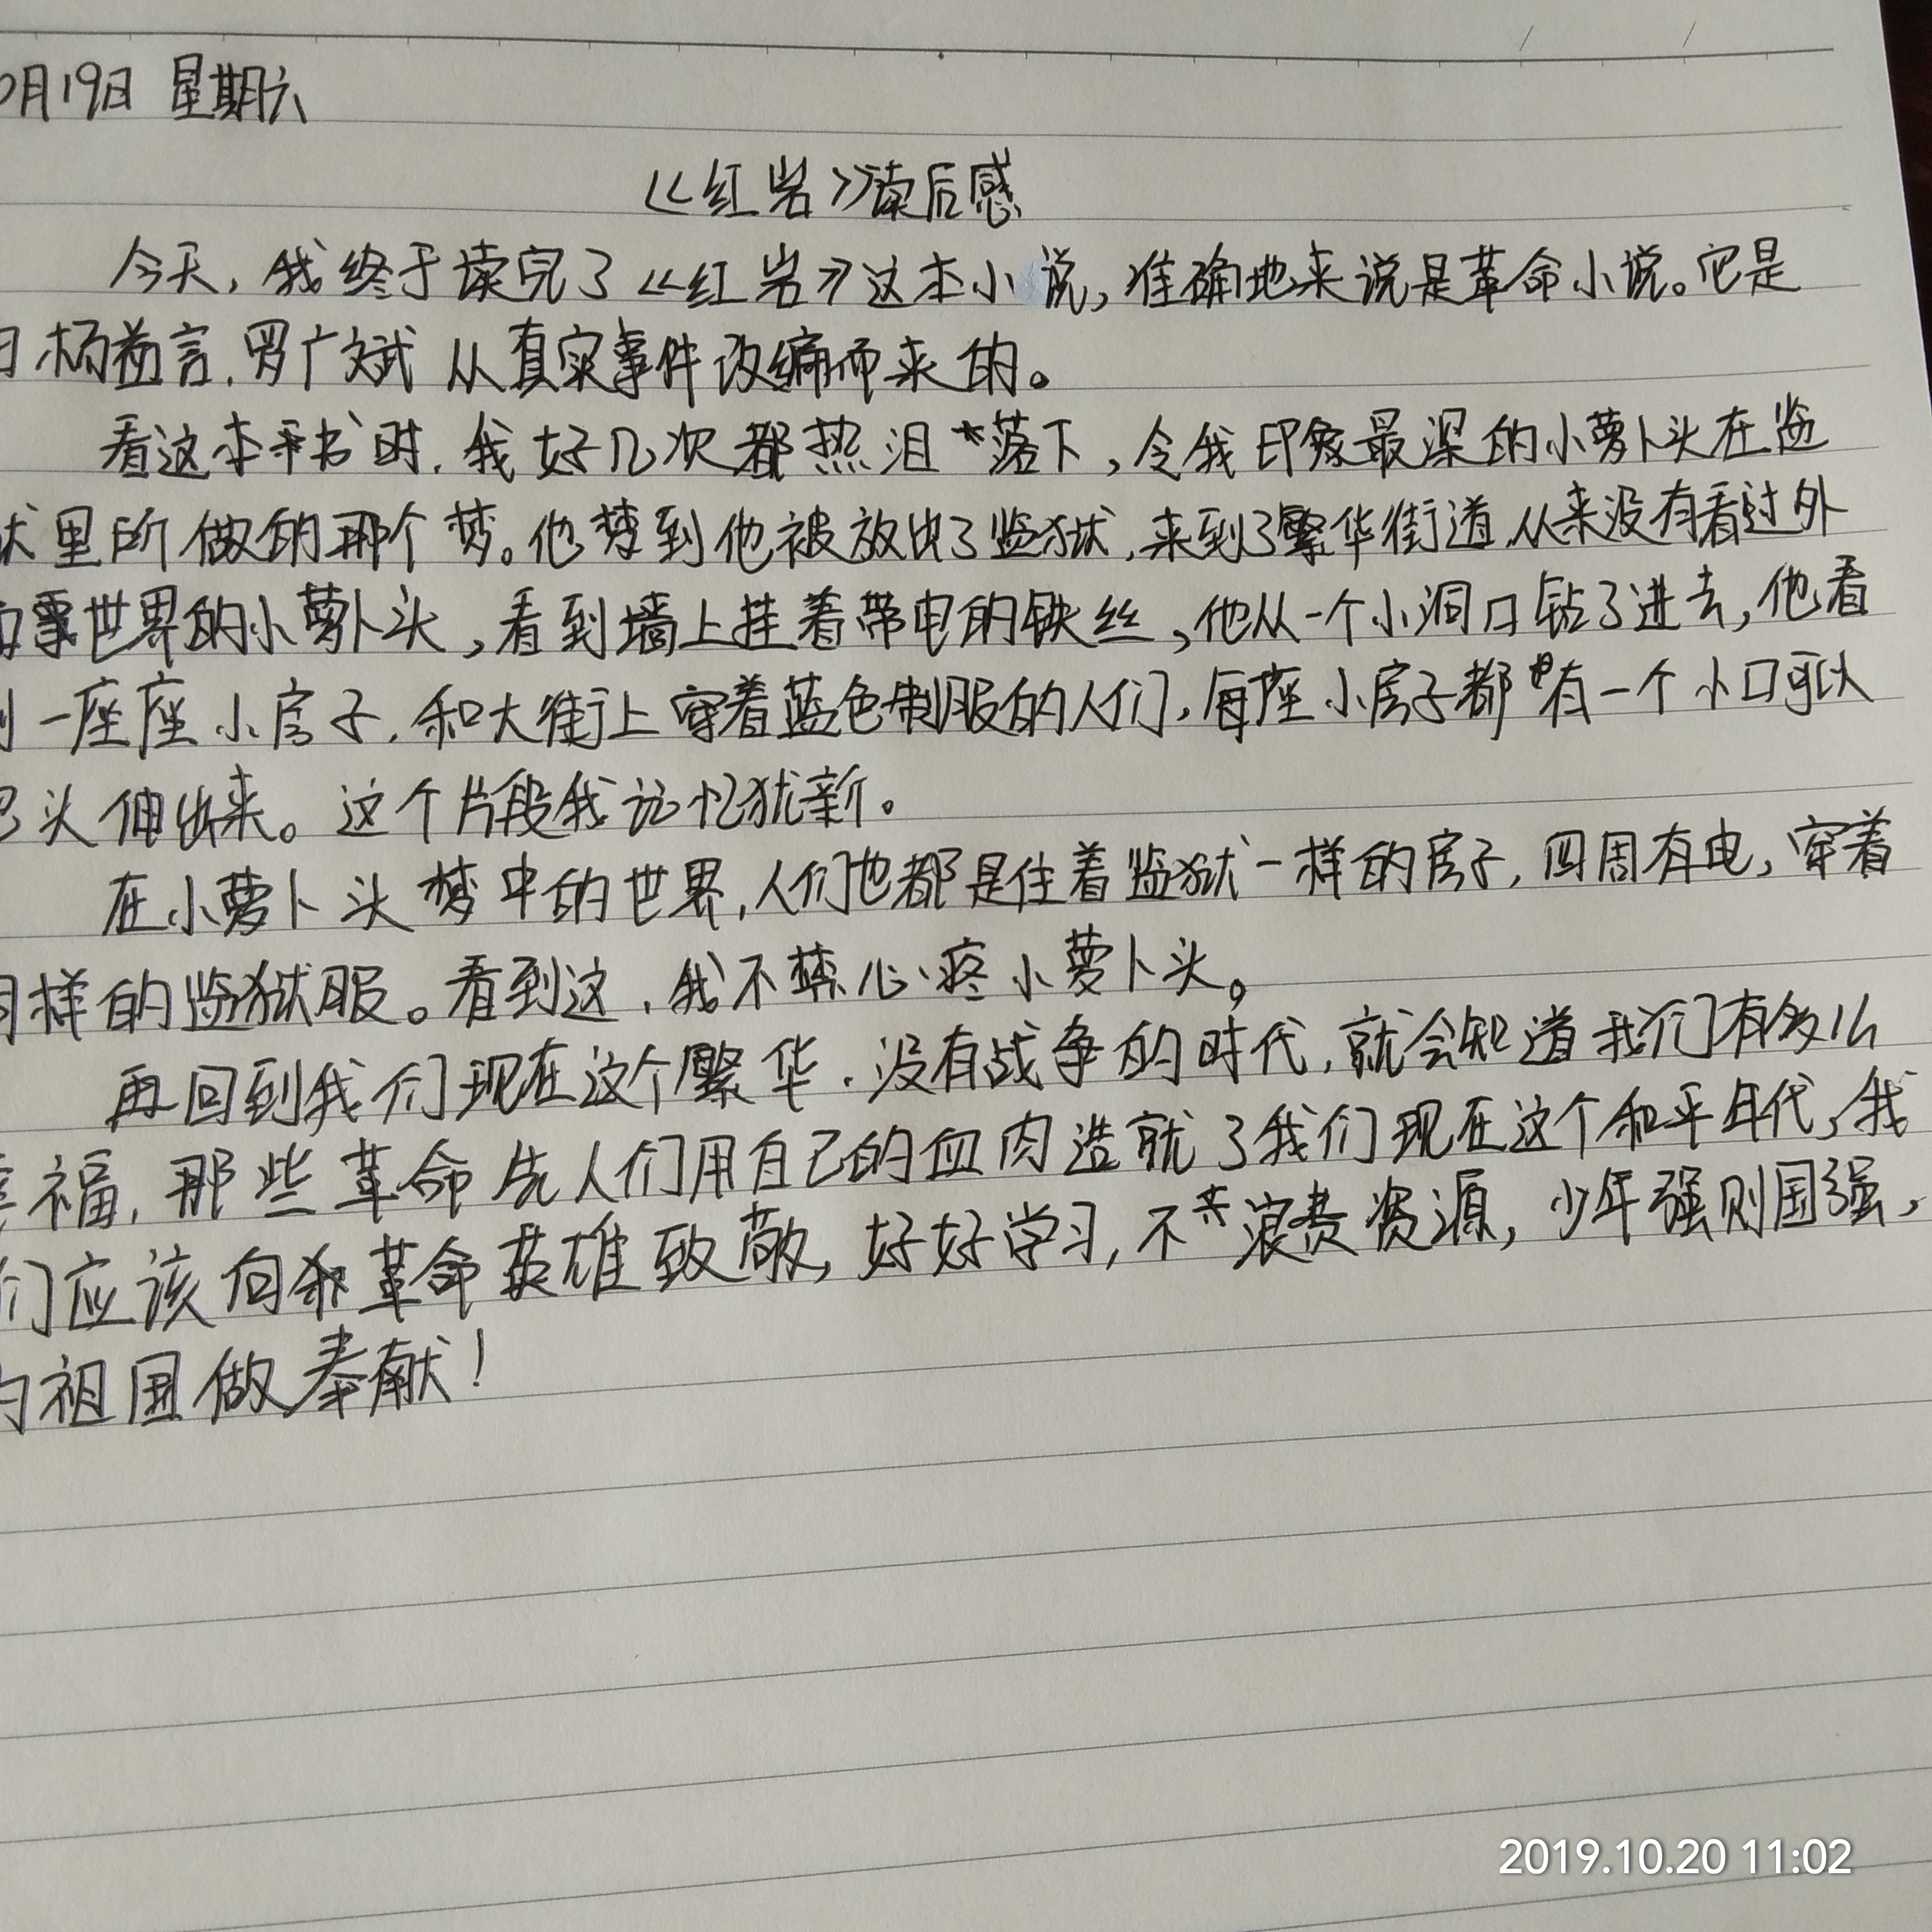 0月19日 星期六
《红岩》读后感
今天,我终于读完了《红岩》这本小说,准确地来说是革命小说。它是
杨益言,罗广斌从真实事件改编而来的。
看这本书时,我好几次都热泪落下,令我印象最深的小萝卜头在监
狱里所做的那个梦。他梦到他被放出了监狱,来到了繁华街道,从来没有看过外
世界的小萝卜头,看到墙上挂着带电的铁丝,他从一个小洞口钻了进去,他看
到一座座小房子,和大街上穿着蓝色制服的人们,每座小房子都有一个小口可以
把头伸出来。这个片段我记忆犹新。
在小萝卜头梦中的世界,人们也都是住着监狱一样的房子,四周有电,穿着
同样的监狱服。看到这,我不禁心疼小萝卜头。
再回到我们现在这个繁华,没有战争的时代,就会知道我们有多么
幸福,那些革命先人们用自己的血肉造就了我们现在这个和平年代,我
们应该向革命英雄致敬,好好学习,不浪费资源,少年强则国强,
为祖国做奉献!
2019.10.20 11:02